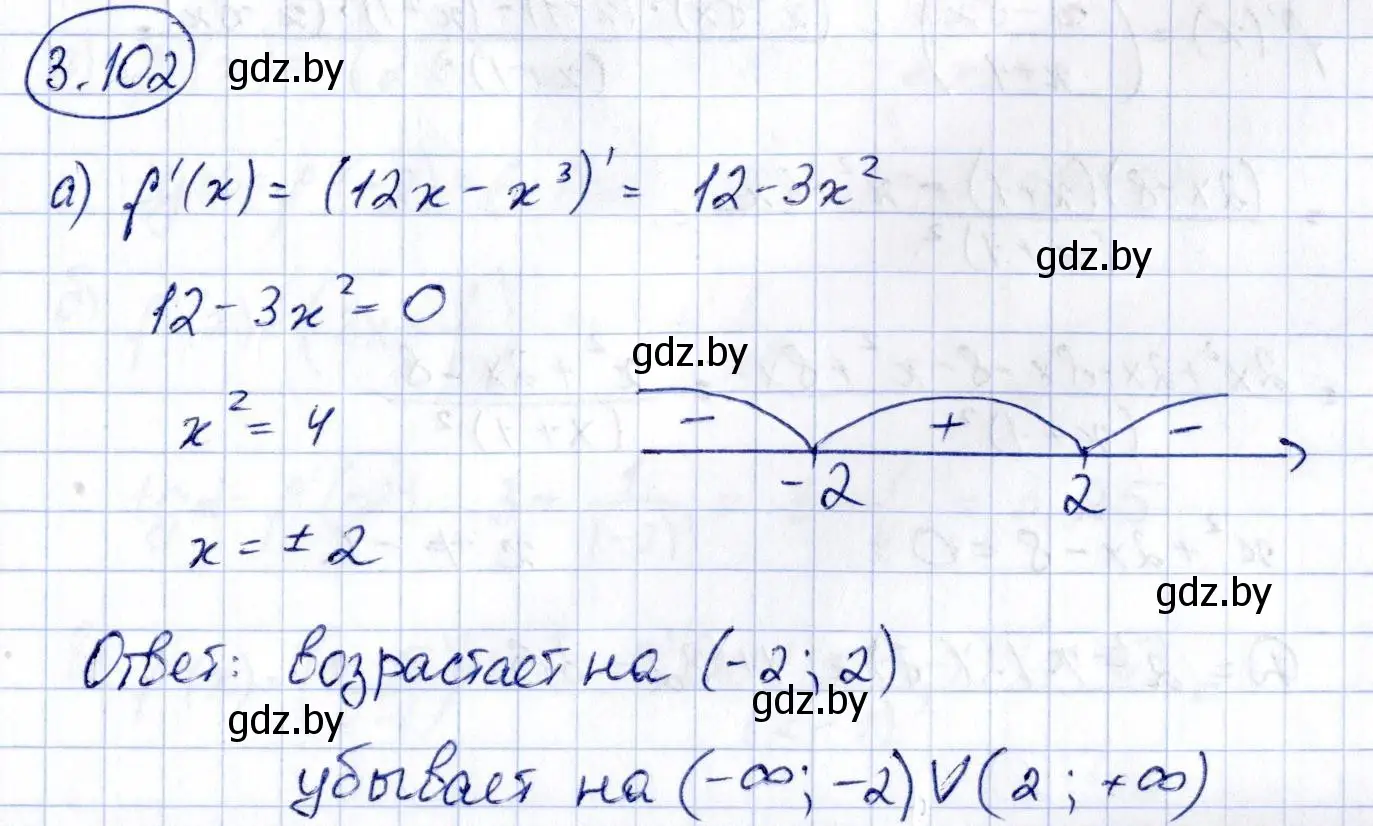 3.102 gdz.by
а) f'(x) = (12x - x³)' = 12 - 3x²
gdz.by
12 - 3x² = 0
gdz.by
x² = 4
- + -
-2 2
x = ± 2
gdz.by
Ответ: возрастает на (-2; 2)
gdz.by gdz.by
убывает на (-∞; -2) V (2; +∞)